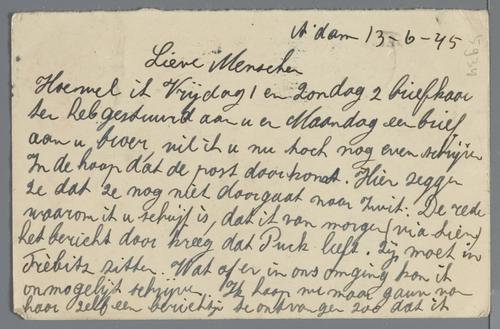 A'dam 13-6-45
Lieve Menschen
Hoewel ik Vrijdag 1 en Zondag 2 briefkaar
ten heb gestuurd aan u en Maandag een brief
aan u broer, wil ik u nu toch nog even schrijven
In de hoop dat de post doorkomt. Hier zegge
ze dat ze nog niet doorgaat naar Zwits. De rede
waarom ik u schrijf is, dat ik van morgen (via Sien)
het bericht door kreeg dat Puck leeft. Zij moet in
Trèbitz zitten. Wat of er in ons omging kan ik
onmogelijk schrijven. Ik hoop nu maar gauw van
haar zelf een berichtje te ontvangen zoo dat ik